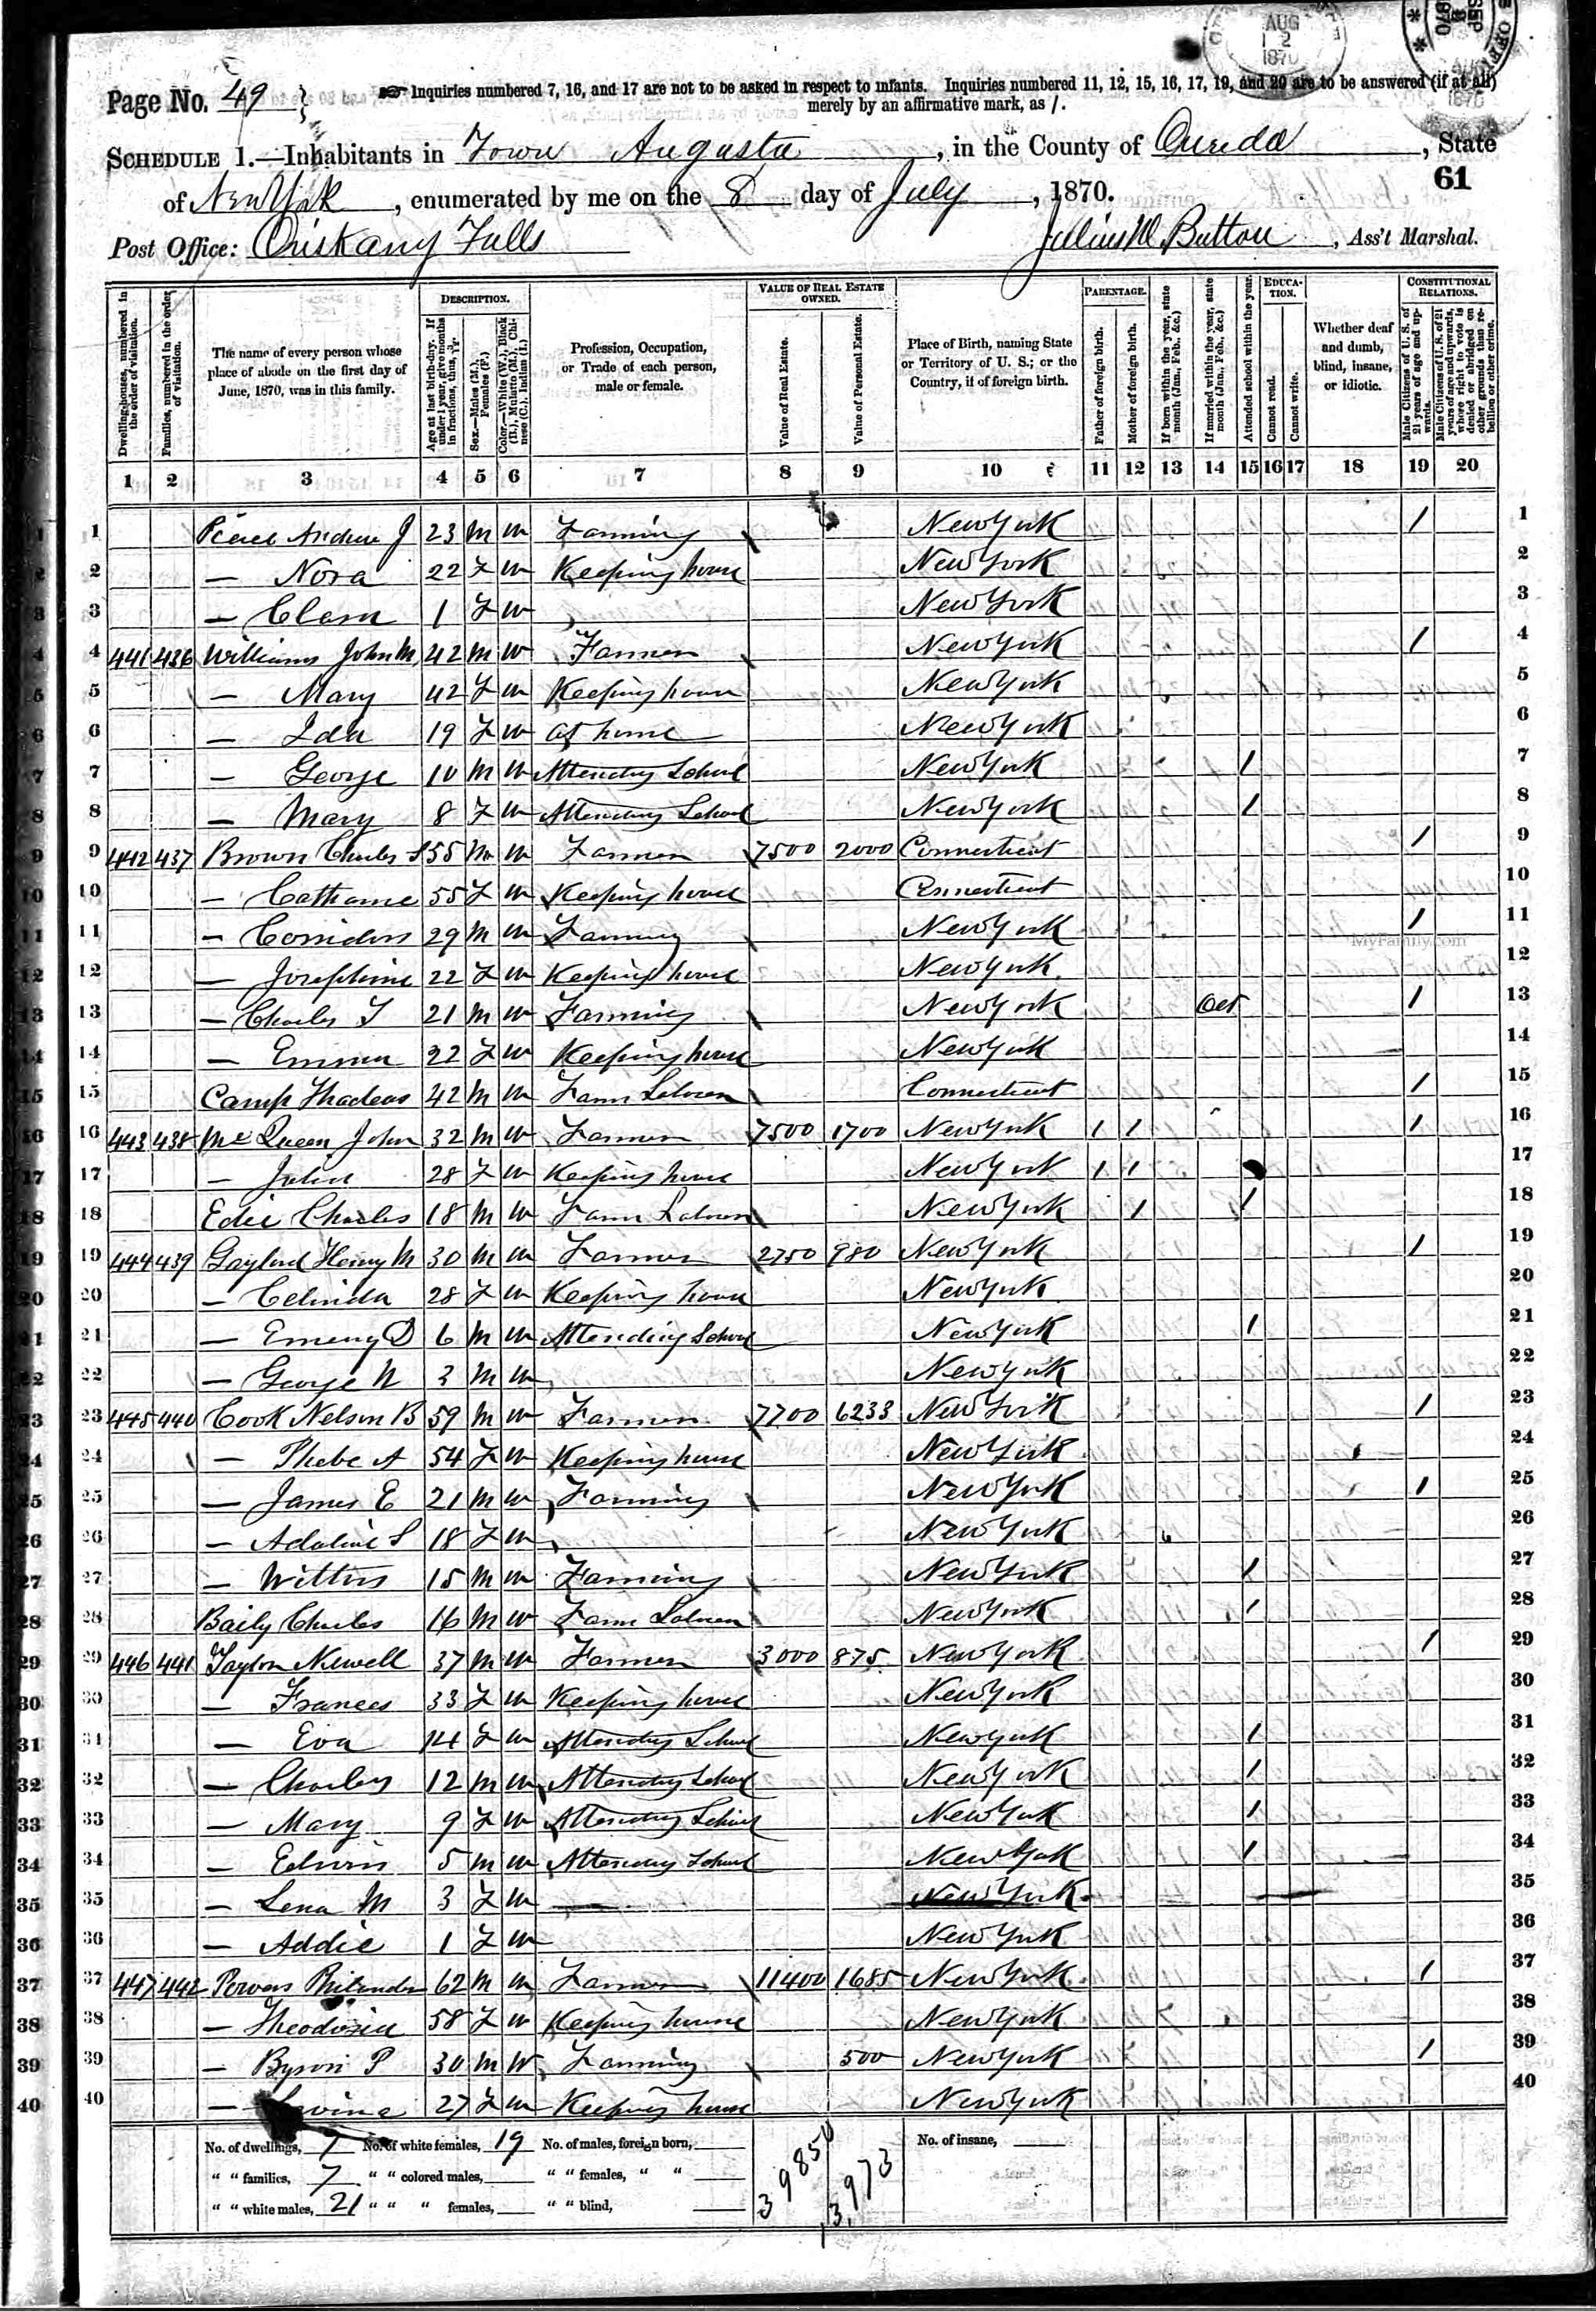 Page No. 49
Inquiries numbered 7, 16, and 17 are not to be asked in respect to infants. Inquiries numbered 11, 12, 15, 16, 17, 19, and 20 are to be answered (if at all)
merely by an affirmative mark, as /.
SCHEDULE 1.—Inhabitants in Town Augusta, in the County of Oneida, State
of New York, enumerated by me on the 8 day of July, 1870.
61
Post Office: Oriskany Falls Julius W. Button, Ass't Marshal.
AUG 12 1870
Dwelling-houses, numbered in the order of visitation.
Families, numbered in the order of visitation.
The name of every person whose place of abode on the first day of June, 1870, was in this family.
DESCRIPTION.
Age at last birth-day. If under 1 year, give months in fractions, thus, 3/12.
Sex.—Males (M.), Females (F.)
Color.—White (W.), Black (B.), Mulatto (M.), Chinese (C.), Indian (I.)
Profession, Occupation, or Trade of each person, male or female.
VALUE OF REAL ESTATE OWNED.
Value of Real Estate.
Value of Personal Estate.
Place of Birth, naming State or Territory of U. S.; or the Country, if of foreign birth.
PARENTAGE.
Father of foreign birth.
Mother of foreign birth.
If born within the year, state month (Jan., Feb., &c.)
If married within the year, state month (Jan., Feb., &c.)
Attended school within the year.
EDUCATION.
Cannot read.
Cannot write.
Whether deaf and dumb, blind, insane, or idiotic.
CONSTITUTIONAL RELATIONS.
Male Citizens of U. S. of 21 years of age and upwards.
Male Citizens of U. S. of 21 years of age and upwards, whose right to vote is denied or abridged on other grounds than rebellion or other crime.
1 2 3 4 5 6 7 8 9 10 11 12 13 14 15 16 17 18 19 20
1 Andrew J 23 M W Farming New York / 1
2 — Nora 22 F W Keeping house New York 2
3 — Clara 1 F W New York 3
4 441 436 Williams John M 42 M W Farmer New York / 4
5 — Mary 42 F W Keeping house New York 5
6 — Ida 19 F W at home New York 6
7 — George 10 M W Attending School New York / 7
8 — Mary 8 F W Attending School New York / 8
9 442 437 Brown Charles S 55 M W Farmer 7500 2000 Connecticut / 9
10 — Catharine 55 F W Keeping house Connecticut 10
11 — 29 M W Farming New York / 11
12 — Josephine 22 F W Keeping house New York 12
13 — Charles T 21 M W Farming New York Oct / 13
14 — Emma 22 F W Keeping house New York 14
15 Camp Thadeas 42 M W Farm Laborer Connecticut / 15
16 443 438 McQueen John 32 M W Farmer 7500 1700 New York / / / 16
17 — Julia 28 F W Keeping house New York / / 17
18 Edie Charles 18 M W Farm Laborer New York / / 18
19 444 439 Gaylord Henry M 30 M W Farmer 2750 980 New York / 19
20 — Celinda 28 F W Keeping house New York 20
21 — Emery D 6 M W Attending School New York / 21
22 — George W 3 M W New York 22
23 445 440 Cook Nelson B 59 M W Farmer 7700 6233 New York / 23
24 — Phebe A 54 F W Keeping house New York 24
25 — James E 21 M W Farming New York / 25
26 — Adaline S 18 F W New York 26
27 — 15 M W Farming New York / 27
28 Baily Charles 16 M W Farm Laborer New York / 28
29 446 441 Taylor Newell 37 M W Farmer 3000 875 New York / 29
30 — Frances 33 F W Keeping house New York 30
31 — Eva 14 F W Attending School New York / 31
32 — Charles 12 M W Attending School New York / 32
33 — Mary 9 F W Attending School New York / 33
34 — Edwin 5 M W Attending School New York / 34
35 — Lena M 3 F W — New York 35
36 — Addie 1 F W New York 36
37 447 442 Powers Philander 62 M W Farmer 11400 1685 New York / 37
38 — Theodosia 58 F W Keeping house New York 38
39 — Byron P 30 M W Farming 500 New York / 39
40 — 27 F W Keeping house New York 40
No. of dwellings, 7 No. of white females, 19 No. of males, foreign born, No. of insane,
" " families, 7 " " colored males, " " females, " "
" " white males, 21 " " " females, " " blind,
39850 13,973
MyFamily.com